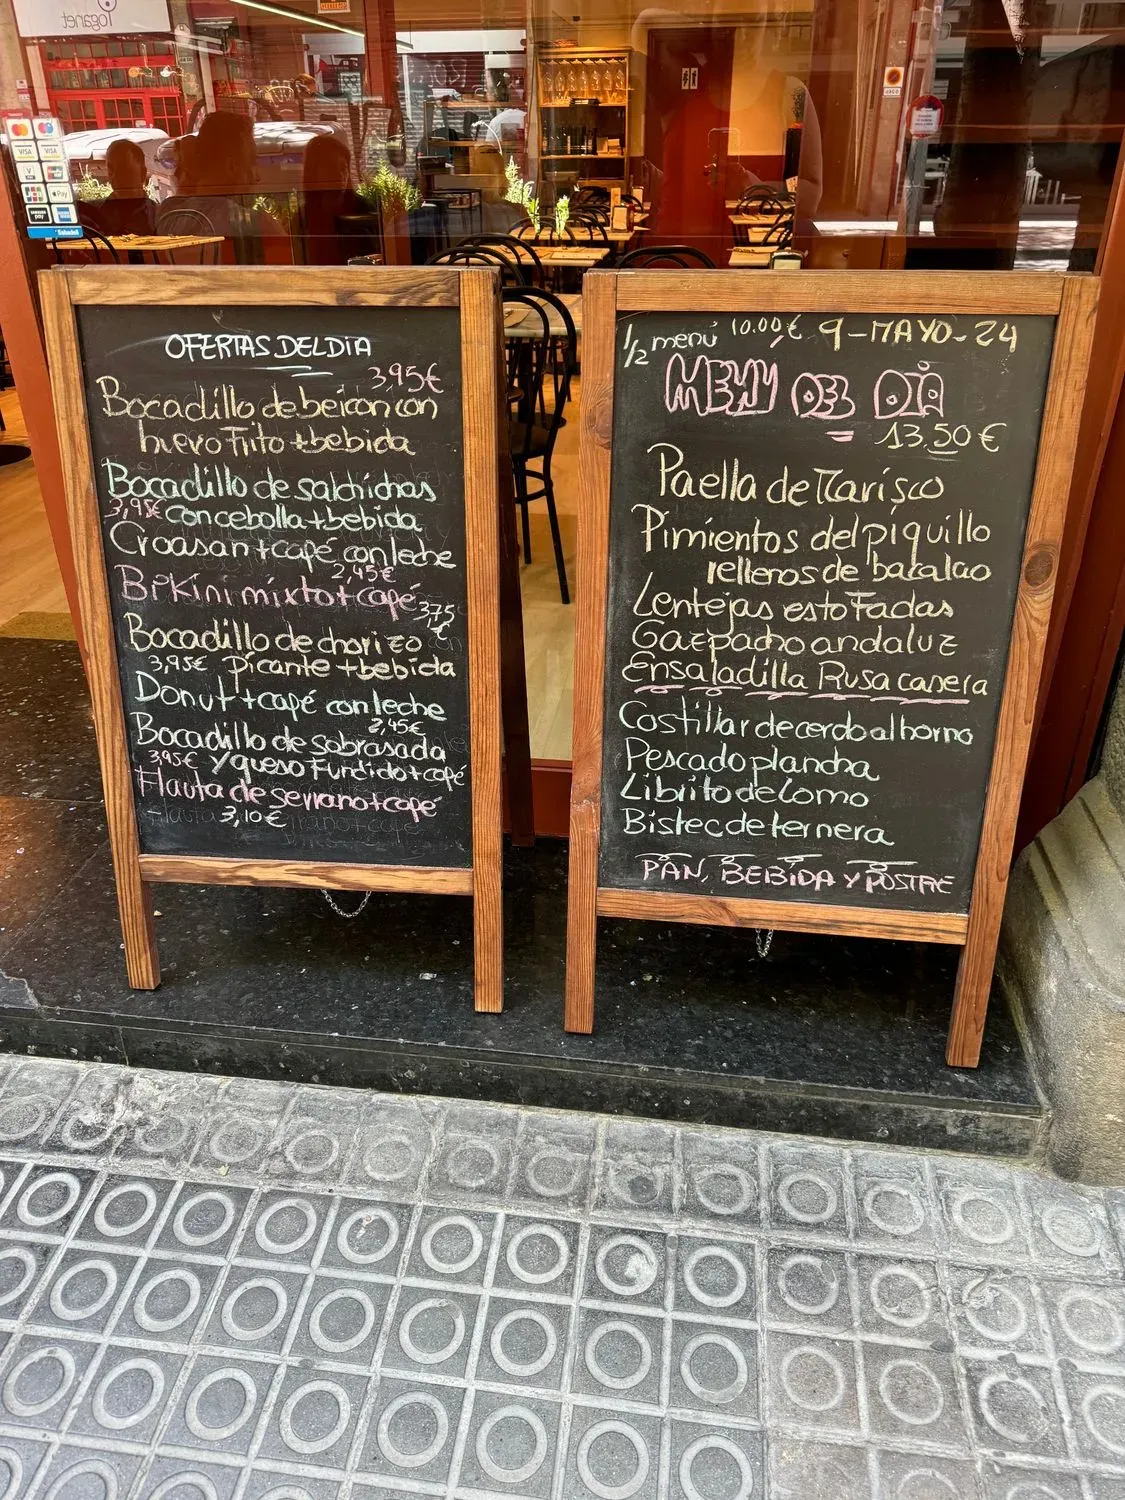 Yoganet
VISA
VISA
Pay
Sabadell
OFERTAS DEL DIA
3,95€
Bocadillo de beicon con
huevo Frito + bebida
Bocadillo de salchichas
3,95€ con cebolla + bebida
Croasan + café con leche
2,45€
Bikini mixto + café
3,75
€
Bocadillo de chorizo
3,95€ Picante + bebida
Donut + café con leche
2,45€
Bocadillo de sobrasada
3,95€ y queso Fundido + café
Flauta de serrano + café
3,10€
1/2 menú 10.00€ 9-MAYO-24
MENÚ DEL DÍA
13.50€
Paella de Marisco
Pimientos del piquillo
rellenos de bacalao
Lentejas estofadas
Gazpacho andaluz
Ensaladilla Rusa casera
Costillar de cerdo al horno
Pescado plancha
Librito de Lomo
Bistec de ternera
PAN, BEBIDA Y POSTRE